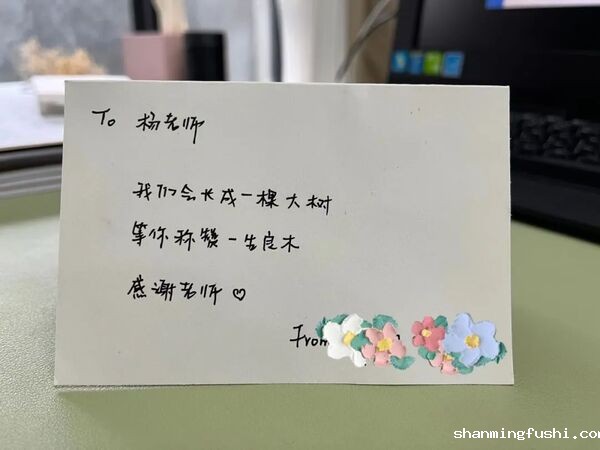 To 杨老师
我们会长成一棵大树
等你称赞一告良木
感谢老师♡
From
shanmingfushi.com